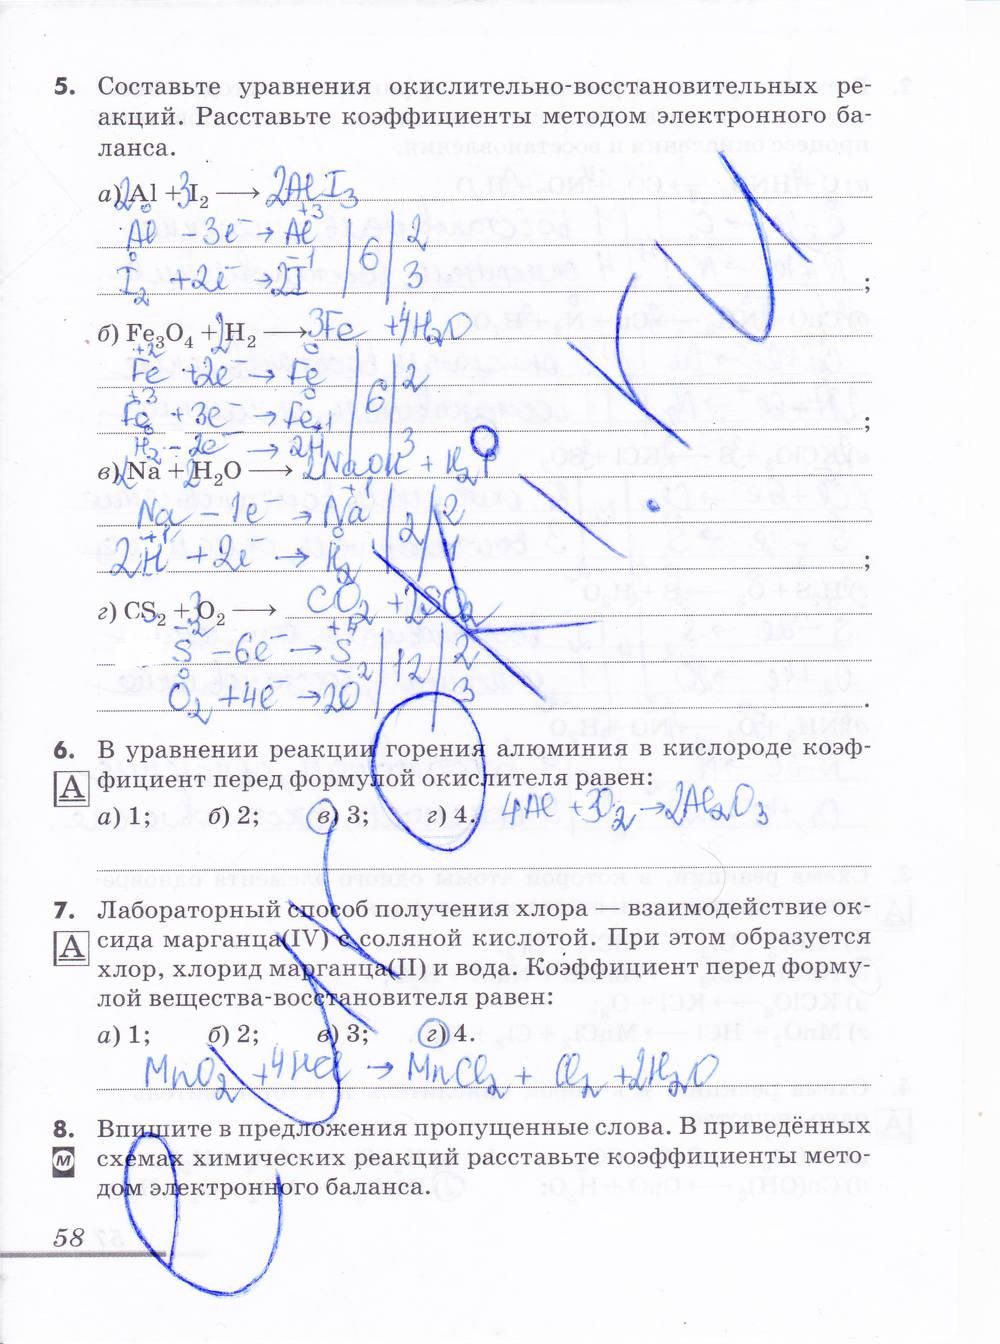 5. Составьте уравнения окислительно-восстановительных ре-
акций. Расставьте коэффициенты методом электронного ба-
ланса.
а) 2Al + 3I₂ ⟶ 2AlI₃
Al⁰ − 3e⁻ → Al⁺³ | 6 | 2
I₂⁰ + 2e⁻ → 2I⁻¹ | | 3 ;
б) Fe₃O₄ + 4H₂ ⟶ 3Fe + 4H₂O
Fe⁺² + 2e⁻ → Fe⁰ | 6 | 2
Fe⁺³ + 3e⁻ → Fe⁰ ;
H₂⁰ − 2e⁻ → 2H⁺¹ | | 3
в) 2Na + 2H₂O ⟶ 2NaOH + H₂↑
Na⁰ − 1e⁻ → Na⁺¹ | 2 | 2
2H⁺¹ + 2e⁻ → H₂⁰ | | 1 ;
г) CS₂ + 3O₂ ⟶ CO₂ + 2SO₂
S − 6e⁻ → S⁺⁴ | 12 | 2
O₂⁰ + 4e⁻ → 2O⁻² | | 3 .
6. В уравнении реакции горения алюминия в кислороде коэф-
А фициент перед формулой окислителя равен:
а) 1; б) 2; в) 3; г) 4. 4Al + 3O₂ → 2Al₂O₃
7. Лабораторный способ получения хлора — взаимодействие ок-
А сида марганца(IV) с соляной кислотой. При этом образуется
хлор, хлорид марганца(II) и вода. Коэффициент перед форму-
лой вещества-восстановителя равен:
а) 1; б) 2; в) 3; г) 4.
MnO₂ + 4HCl → MnCl₂ + Cl₂ + 2H₂O
8. Впишите в предложения пропущенные слова. В приведённых
М схемах химических реакций расставьте коэффициенты мето-
дом электронного баланса.
58